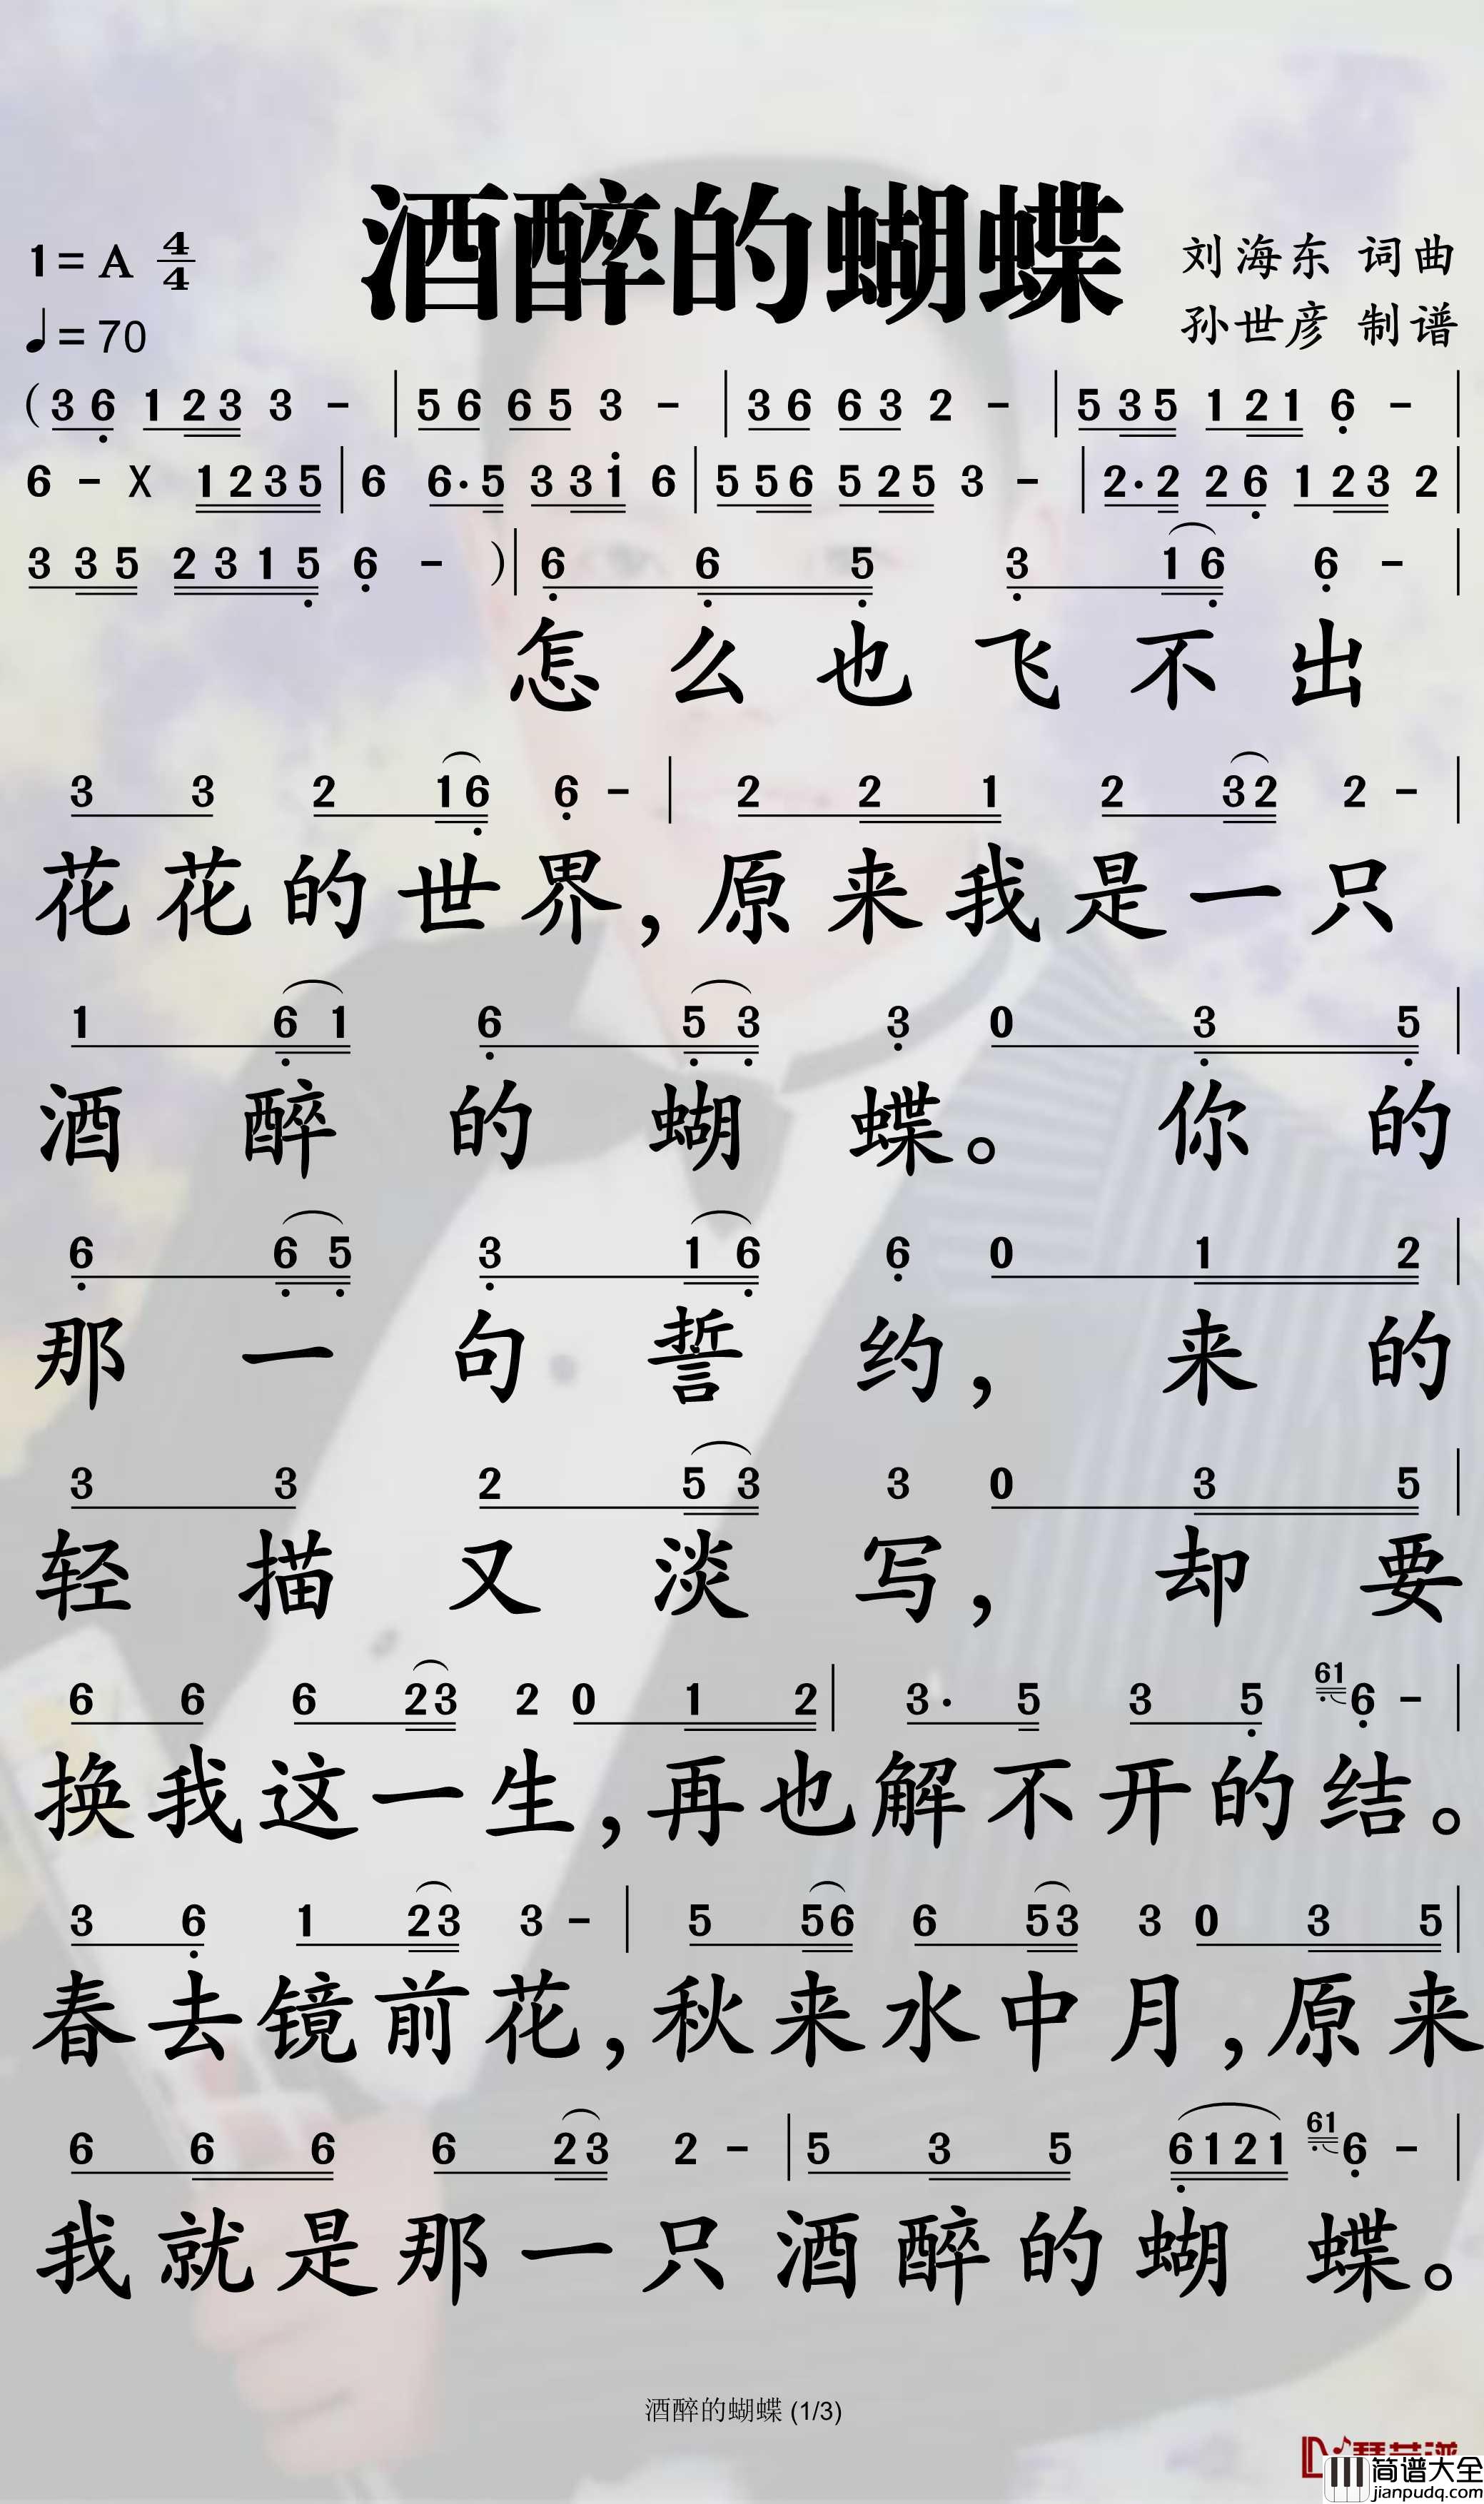 酒醉的蝴蝶
1=A 4/4
♩=70
刘海东 词曲
孙世彦 制谱
(3 6̣ 1 2 3 3 - | 5 6 6 5 3 - | 3 6 6 3 2 - | 5 3 5 1 2 1 6̣ - |
6 - X 1 2 3 5 | 6 6· 5 3 3 1̇ 6 | 5 5 6 5 2 5 3 - | 2· 2 2 6̣ 1 2 3 2 |
3 3 5 2 3 1 5̣ 6̣ - ) | 6̣ 6̣ 5̣ 3̣ 1 6̣ 6̣ - |
怎么也飞不出
3 3 2 1 6̣ 6̣ - | 2 2 1 2 3 2 2 - |
花花的世界,原来我是一只
1 6̣ 1 6̣ 5̣ 3̣ 3̣ 0 3̣ 5̣ |
酒醉的蝴蝶。你的
6̣ 6̣ 5̣ 3̣ 1 6̣ 6̣ 0 1 2 |
那一句誓约,来的
3 3 2 5 3 3 0 3 5 |
轻描又淡写,却要
6 6 6 2 3 2 0 1 2 | 3· 5 3 5̣ 6̣1 6̣ - |
换我这一生,再也解不开的结。
3 6̣ 1 2 3 3 - | 5 5 6 6 5 3 3 0 3 5 |
春去镜前花,秋来水中月,原来
6 6 6 6 2 3 2 - | 5 3 5 6̣ 1 2 1 6̣1 6̣ - |
我就是那一只酒醉的蝴蝶。
酒醉的蝴蝶 (1/3)
简谱大全
jianpudq.com